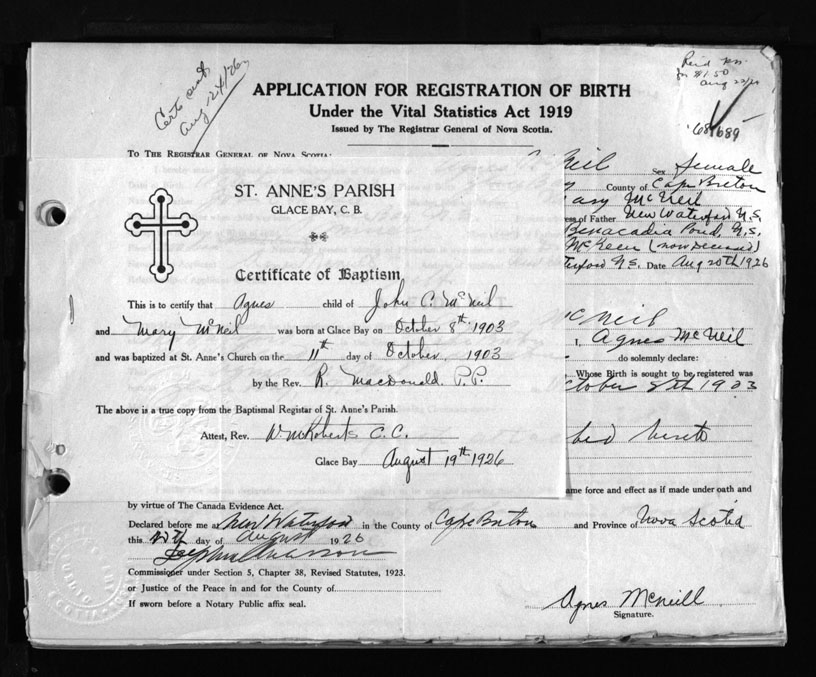 Certs sent
Aug 24/26
APPLICATION FOR REGISTRATION OF BIRTH
Under the Vital Statistics Act 1919
Issued by The Registrar General of Nova Scotia.
Aug
689
TO THE REGISTRAR GENERAL OF NOVA SCOTIA:
Neil Sex female
County of Cape Breton
ary McNeil
ess of Father New Waterford N.S.
Benacadia Pond, N.S.
McKeen (now deceased)
terford N.S. Date Aug 20th 1926
ST. ANNE'S PARISH
GLACE BAY, C. B.
Certificate of Baptism
This is to certify that Agnes child of John C. McNeil
and Mary McNeil was born at Glace Bay on October 8th 1903
and was baptized at St. Anne's Church on the 11th day of October, 1903
by the Rev. R. Macdonald. P.P.
The above is a true copy from the Baptismal Registar of St. Anne's Parish.
Attest, Rev. Wm Roberts C.C.
Glace Bay August 19th 1926
McNeil
I, Agnes McNeil
do solemnly declare:
Whose Birth is sought to be registered was
ctober 8th 1903
hed hereto
ame force and effect as if made under oath and
by virtue of The Canada Evidence Act.
Declared before me at New Waterford in the County of Cape Breton and Province of Nova Scotia
this 20th day of August 1926
Commissioner under Section 5, Chapter 38, Revised Statutes, 1923.
or Justice of the Peace in and for the County of
If sworn before a Notary Public affix seal.
Agnes McNeill
Signature.